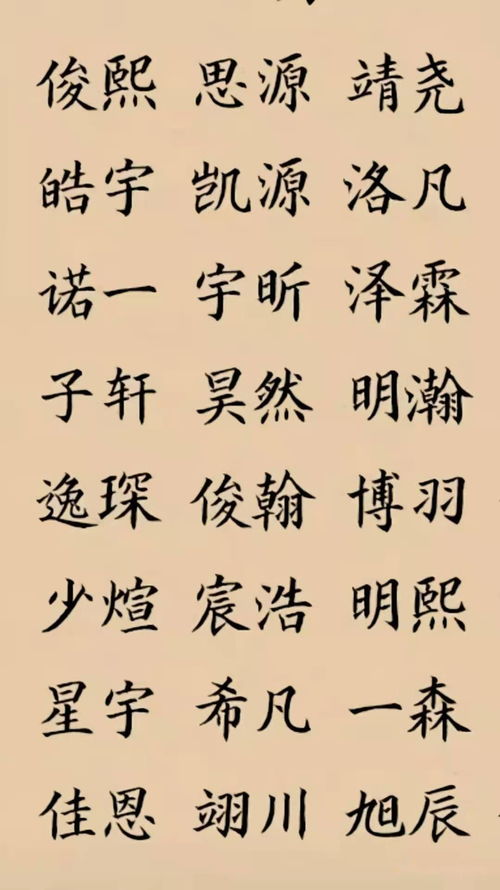 俊熙 思源 靖尧
皓宇 凯源 洛凡
诺一 宇昕 泽霖
子轩 昊然 明瀚
逸琛 俊翰 博羽
少煊 宸浩 明熙
星宇 希凡 一森
佳恩 翊川 旭辰